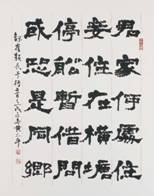 君家何處住
妾住在橫塘
停船暫借問
或恐是同鄉
崔顥長干行